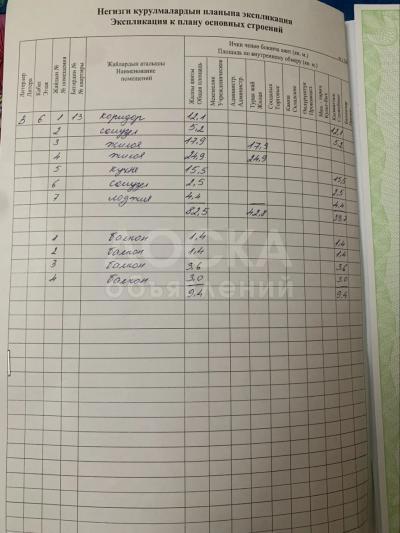 Негизги курулмалардын планына экспликация
Экспликация к плану основных строений
Ички ченөө боюнча аянт (кв. м.)
Площадь по внутреннему обмеру (кв. м.)
Литерлер Литера
Кабат Этаж
Жайдын № № помещения
Батирдин № № квартиры
Жайлардын аталышы Наименование помещений
Жалпы аянты Общая площадь
Турак жай Жилая
В 6 1 13 коридор 12,1 12,1
2 санузел 5,2 5,2
3 жилая 17,9 17,9
4 жилая 24,9 24,9
5 кухня 15,5 15,5
6 санузел 2,5 2,5
7 лоджия 4,4 4,4
82,5 42,8 39,7
1 балкон 1,4 1,4
2 балкон 1,4 1,4
3 балкон 3,6 3,6
4 балкон 3,0 3,0
9,4 9,4
ДОСКА
объявлений